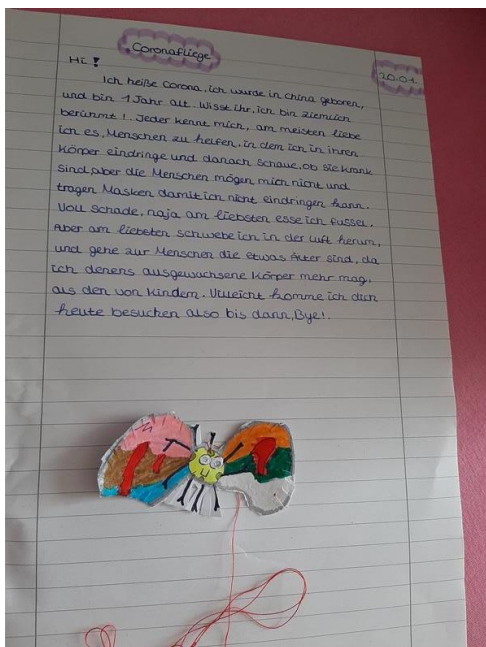 Coronafliege
20.01.
Hi!
Ich heiße Corona, ich wurde in China geboren,
und bin 1 Jahr alt. Wisst ihr, ich bin ziemlich
berühmt! Jeder kennt mich, am meisten liebe
ich es, Menschen zu helfen, in dem ich in ihren
Körper eindringe und danach schaue, ob sie krank
sind, aber die Menschen mögen mich nicht und
tragen Masken damit ich nicht eindringen kann.
Voll schade, naja am liebsten esse ich Fussel.
Aber am liebsten schwebe ich in der Luft herum,
und gehe zur Menschen die etwas Älter sind, da
ich denens ausgewachsene Körper mehr mag,
als den von Kindern. Villeicht komme ich dich
heute besuchen also bis dann, Bye!.